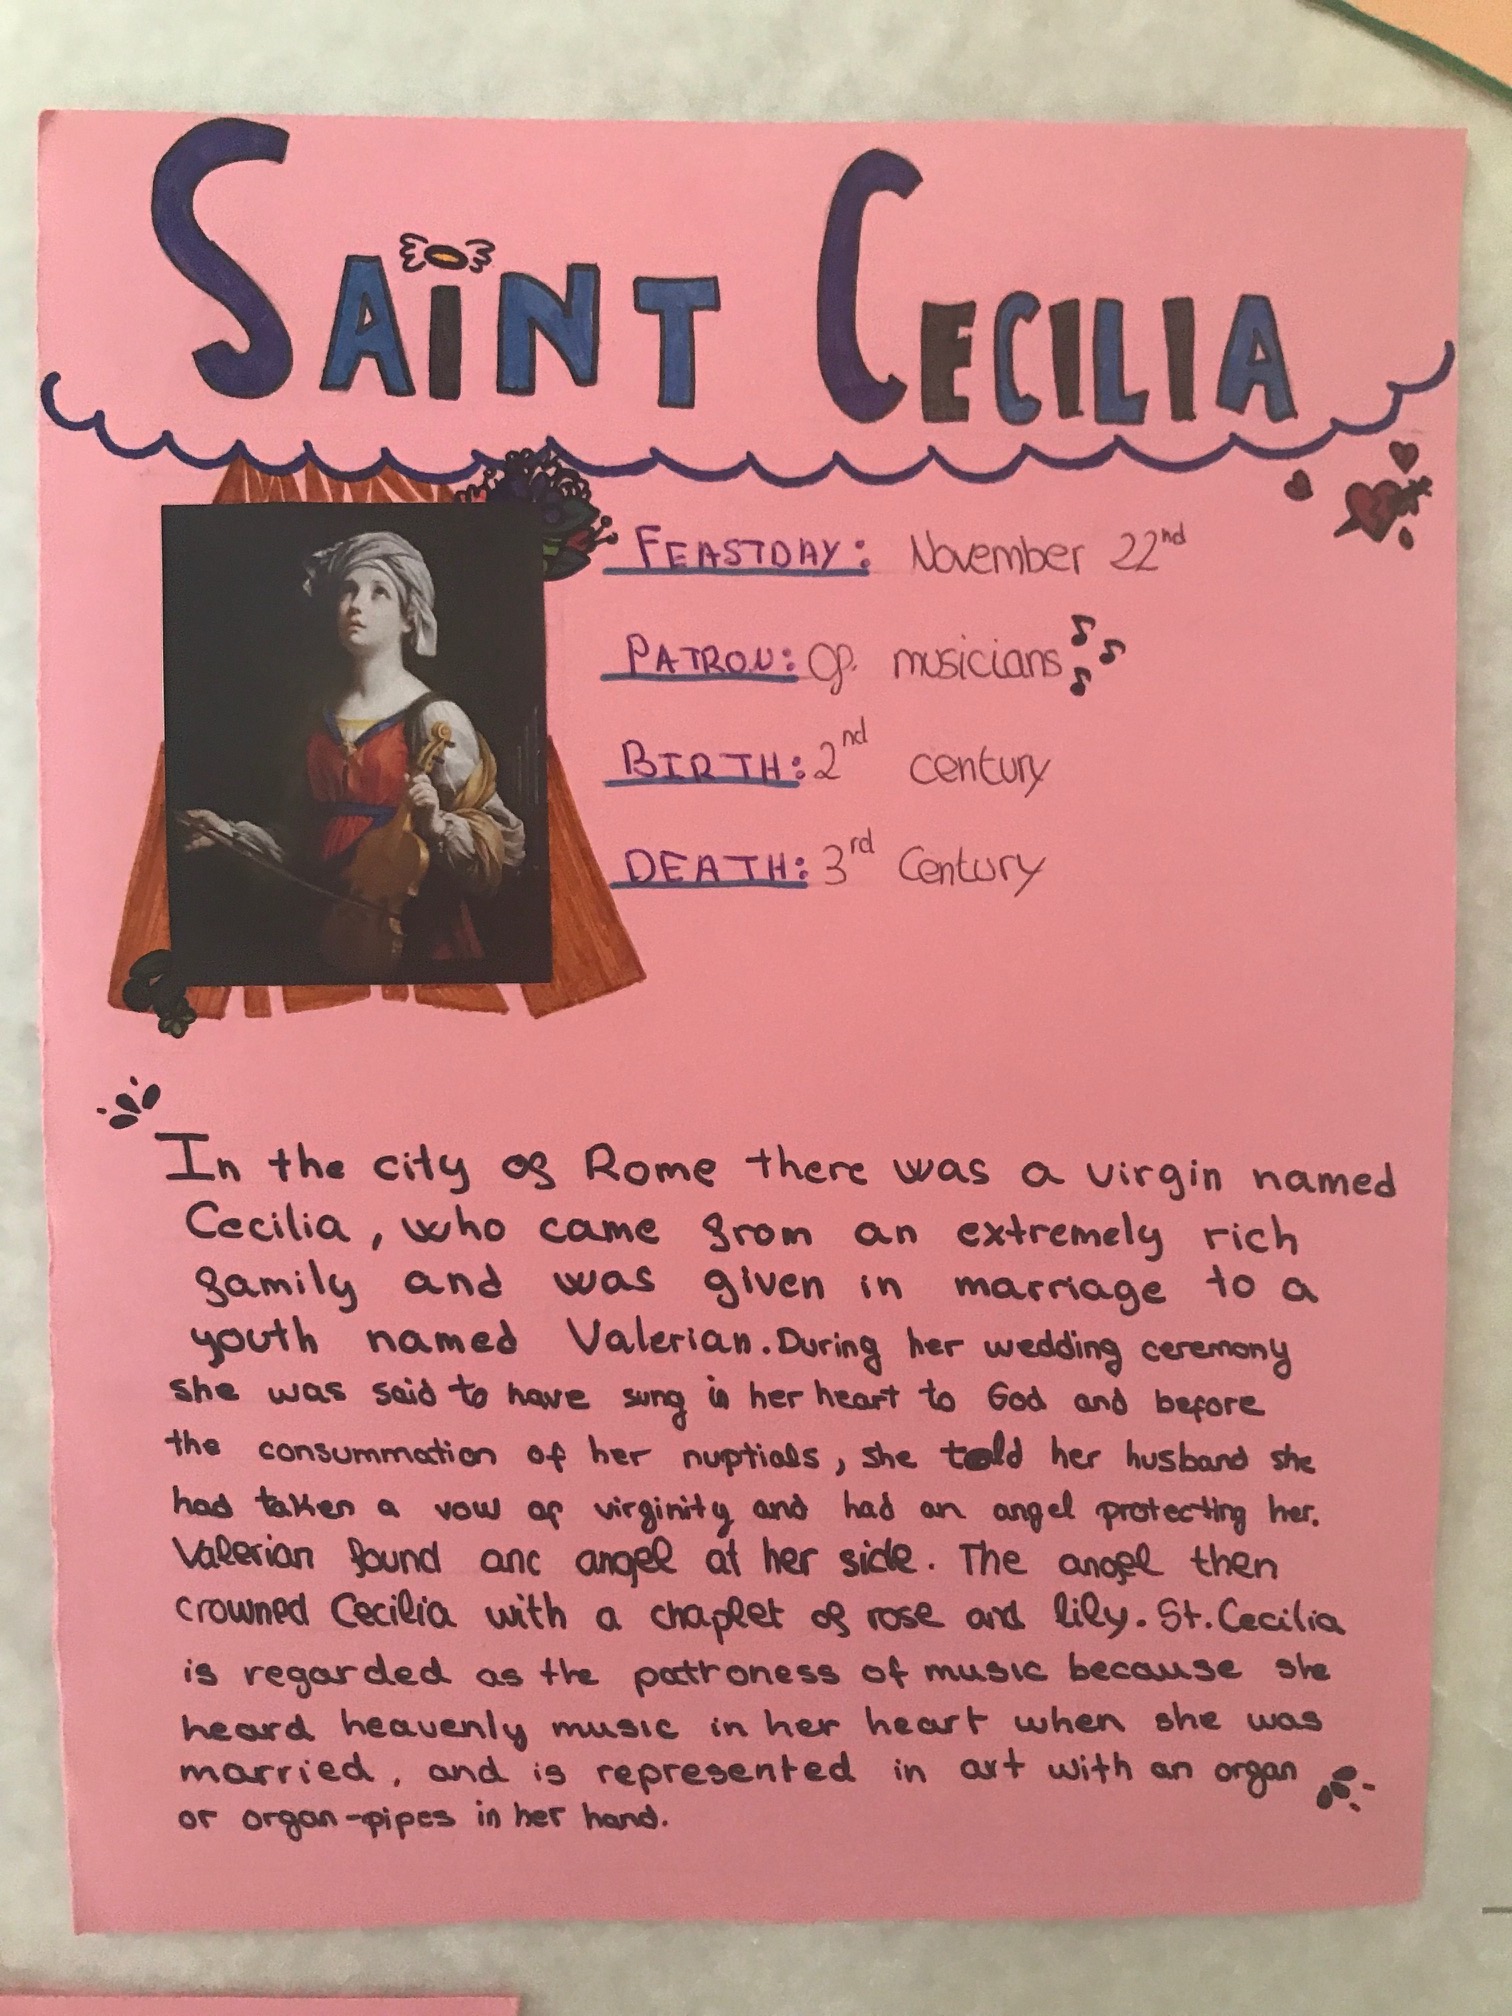 SAINT CECILIA
FEASTDAY: November 22nd
PATRON: Of musicians
BIRTH: 2nd century
DEATH: 3rd Century
In the city of Rome there was a virgin named
Cecilia, who came from an extremely rich
family and was given in marriage to a
youth named Valerian. During her wedding ceremony
she was said to have sung in her heart to God and before
the consummation of her nuptials, she told her husband she
had taken a vow of virginity and had an angel protecting her.
Valerian found anc angel at her side. The angel then
crowned Cecilia with a chaplet of rose and lily. St. Cecilia
is regarded as the patroness of music because she
heard heavenly music in her heart when she was
married, and is represented in art with an organ
or organ-pipes in her hand.